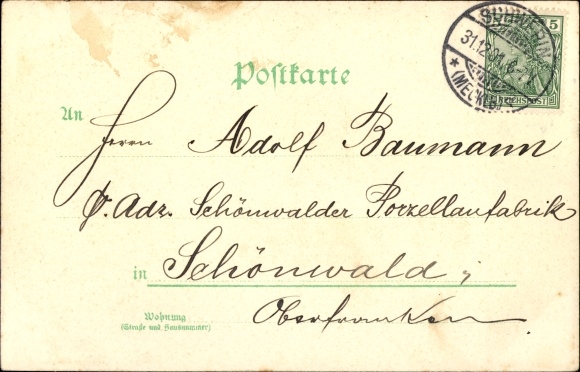 SCHWERIN
31.12.01. 6-7
* (MECKLB)
5
REICHSPOST
Postkarte
An
Herrn Adolf Baumann
p. Adr. Schönwalder Porzellanfabrik
in Schönwald,
Wohnung
(Straße und Hausnummer)
Oberfranken